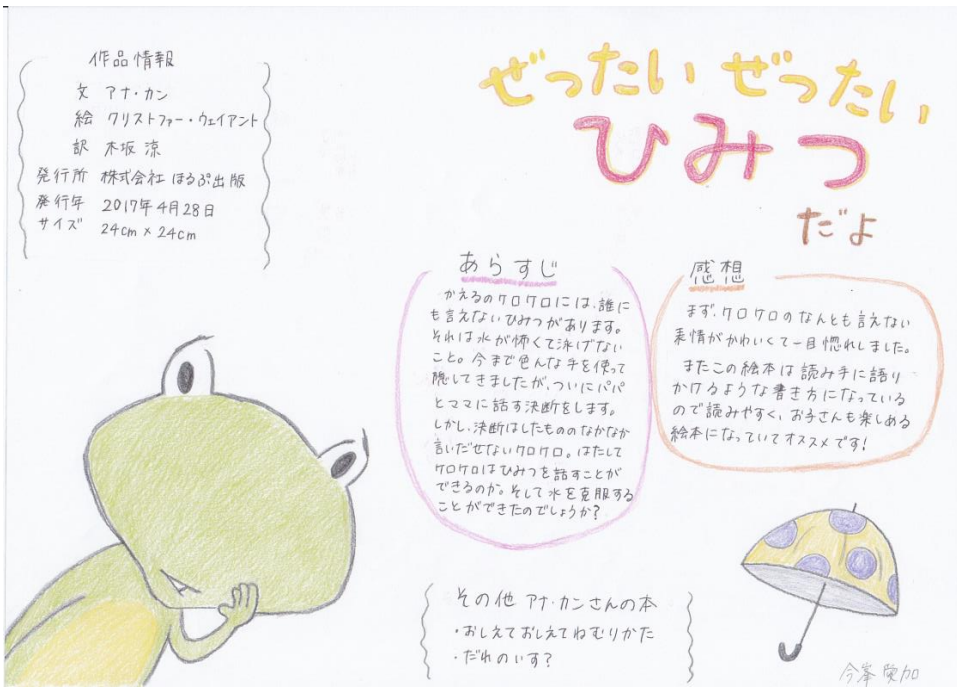 作品情報
文 アナ・カン
絵 クリストファー・ウェイアント
訳 木坂 涼
発行所 株式会社 ほるぷ出版
発行年 2017年4月28日
サイズ 24cm×24cm
ぜったい ぜったい
ひみつ
だよ
あらすじ
かえるのケロケロには、誰に
も言えないひみつがあります。
それは水が怖くて泳げない
こと。今まで色んな手を使って
隠してきましたが、ついにパパ
とママに話す決断をします。
しかし、決断はしたもののなかなか
言いだせないケロケロ。はたして
ケロケロはひみつを話すことが
できるのか。そして水を克服する
ことができたのでしょうか?
感想
まず、ケロケロのなんとも言えない
表情がかわいくて一目惚れしました。
またこの絵本は読み手に語り
かけるような書き方になっている
ので読みやすく、お子さんも楽しめる
絵本になっていてオススメです!
その他 アナ・カンさんの本
・おしえておしえてねむりかた
・だれのいす?
今峯 加